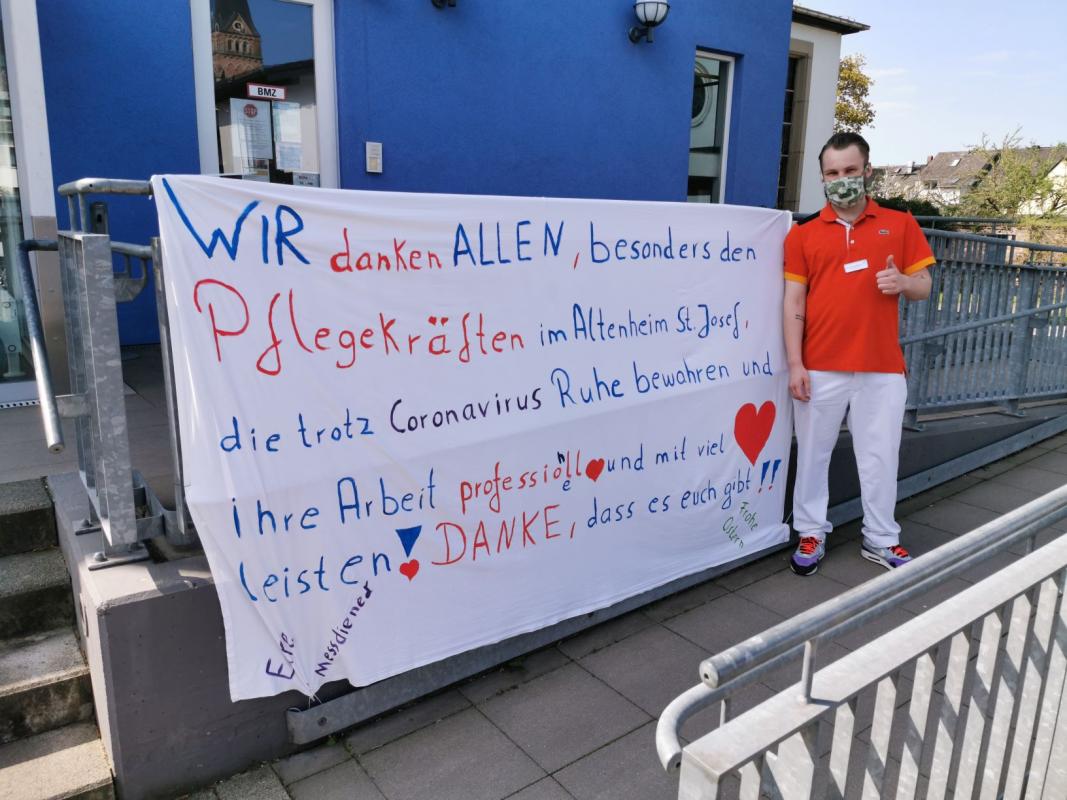 BMZ
STOP
WIR danken ALLEN, besonders den
Pflegekräften im Altenheim St. Josef,
die trotz Coronavirus Ruhe bewahren und
ihre Arbeit professionell und mit viel
leisten! DANKE, dass es euch gibt!!
Frohe
Ostern
Eure
Messdiener